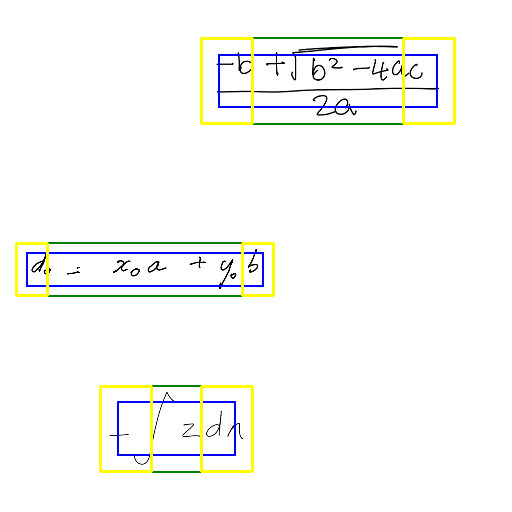 \frac{-b + \sqrt{b^2 - 4ac}}{2a}
d_0 = x_0 a + y_0 b
- \int z dn